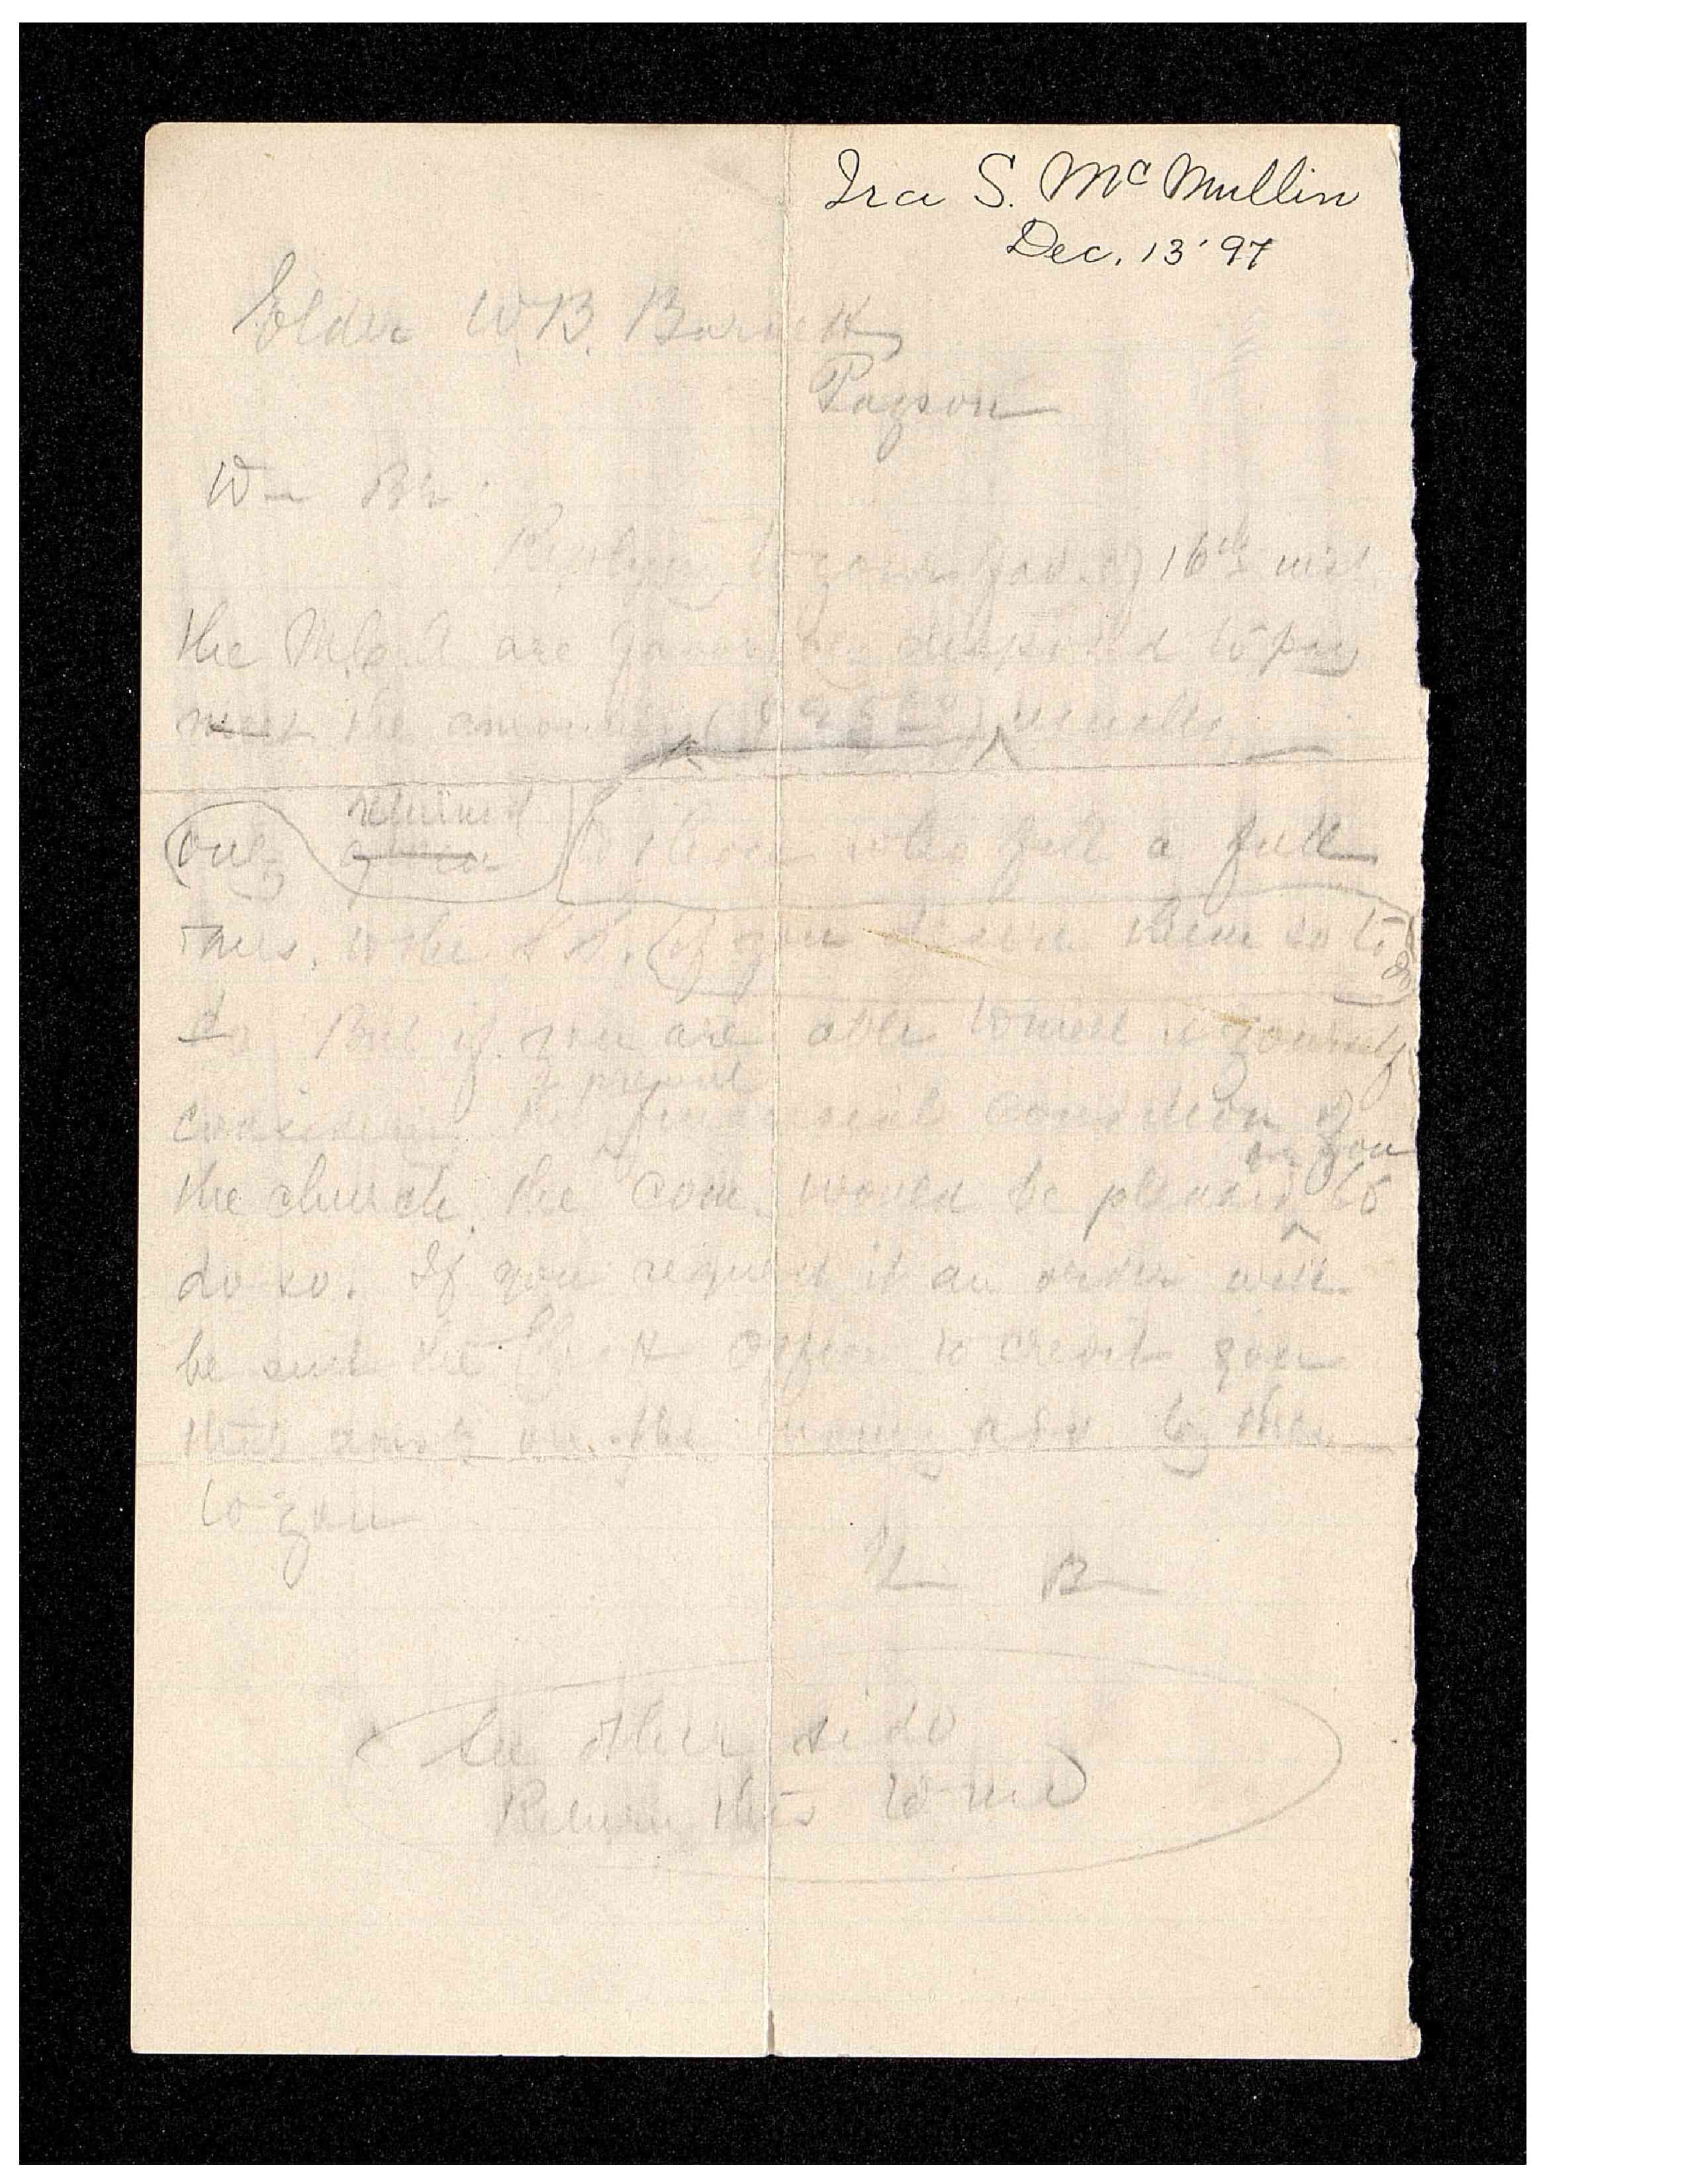 Ira S. McMullin
Dec. 13 '97
Elder W.B. Barnett
Payson
Replying to your fav. of 16th inst
the are favorably disposed to pay
meet the amount usually
returned
only to those who fill a full
mis. if you desire them so to
do
do But if you are able to meet it yourself
present
considering the financial condition of
the church, the Com. would be pleased to
for you
do so. If you request it an order will
be sent the Office to credit you
that amt on the money adv. by them
to you
See other side
Return this to me